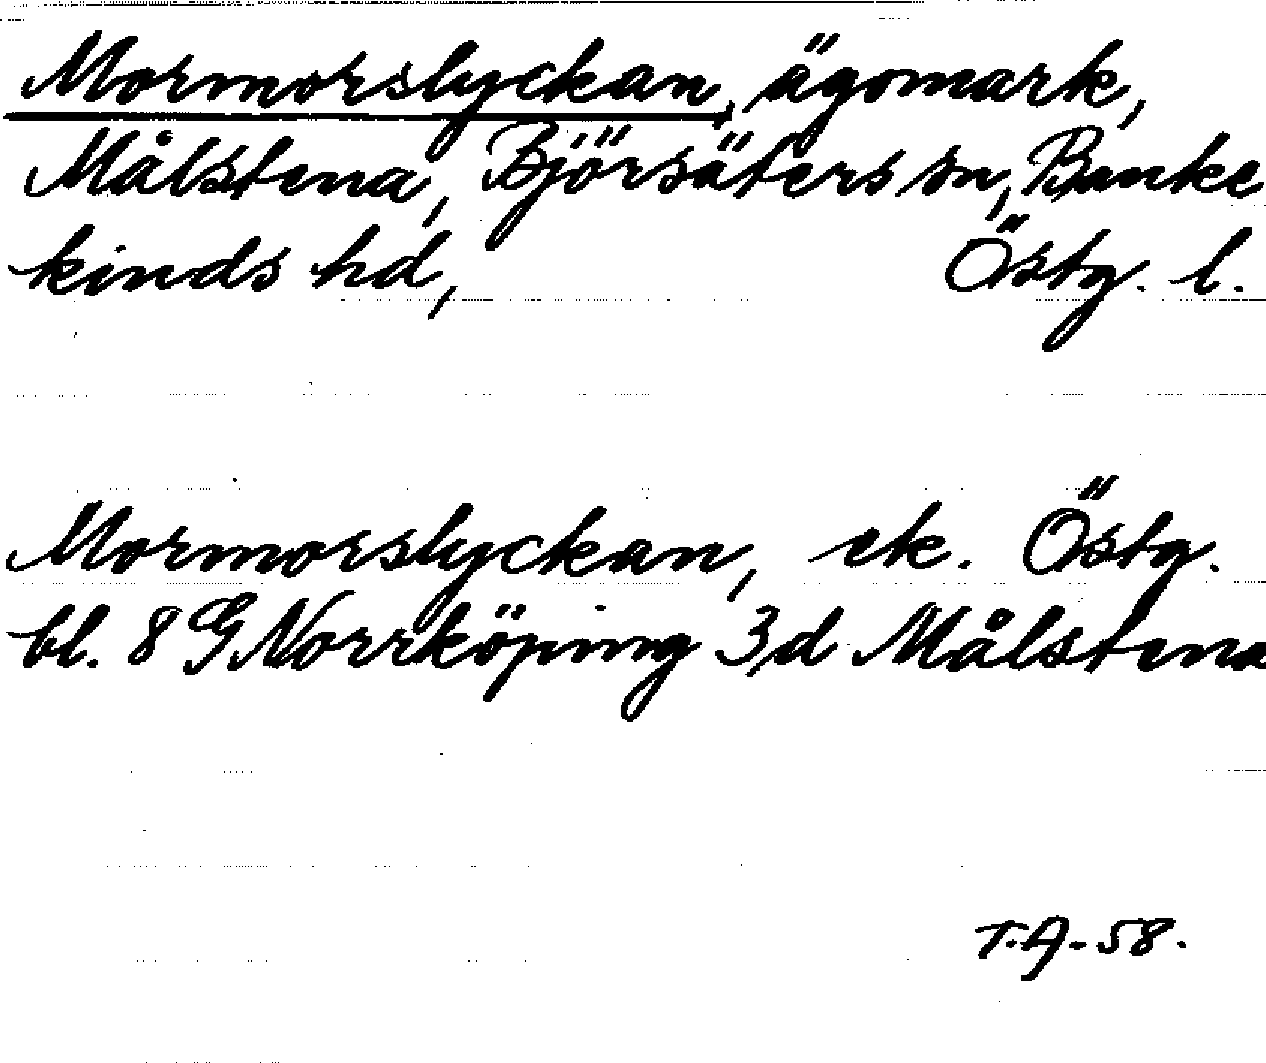 Mormorslyckan, ägomark,
Målstena, Björsäters sn, Banke
kinds hd, Östg. l.
Mormorslyckan, ek. Östg.
bl. 8 G Norrköping 3d Målstena
T.A-58.